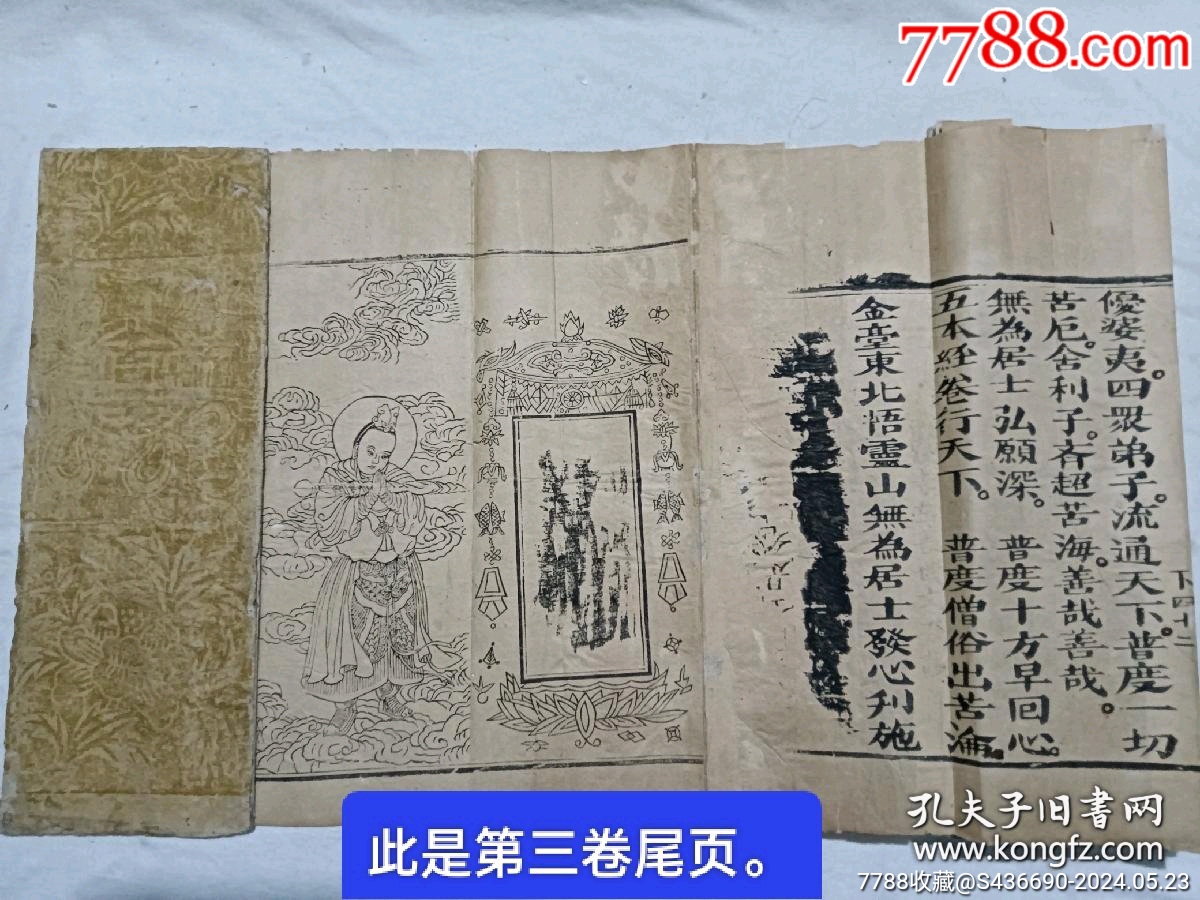 7788.com
優婆夷。四眾弟子。流通天下。普度一切
苦厄。舍利子。斉超苦海。善哉善哉。
無為居士弘願深。 普度十方早回心。
五本經卷行天下。 普度僧俗出苦淪。
金臺東北悟靈山無為居士發心刊施
下四十二
此是第三卷尾页。
孔夫子旧书网
www.kongfz.com
7788收藏@S436690-2024.05.23